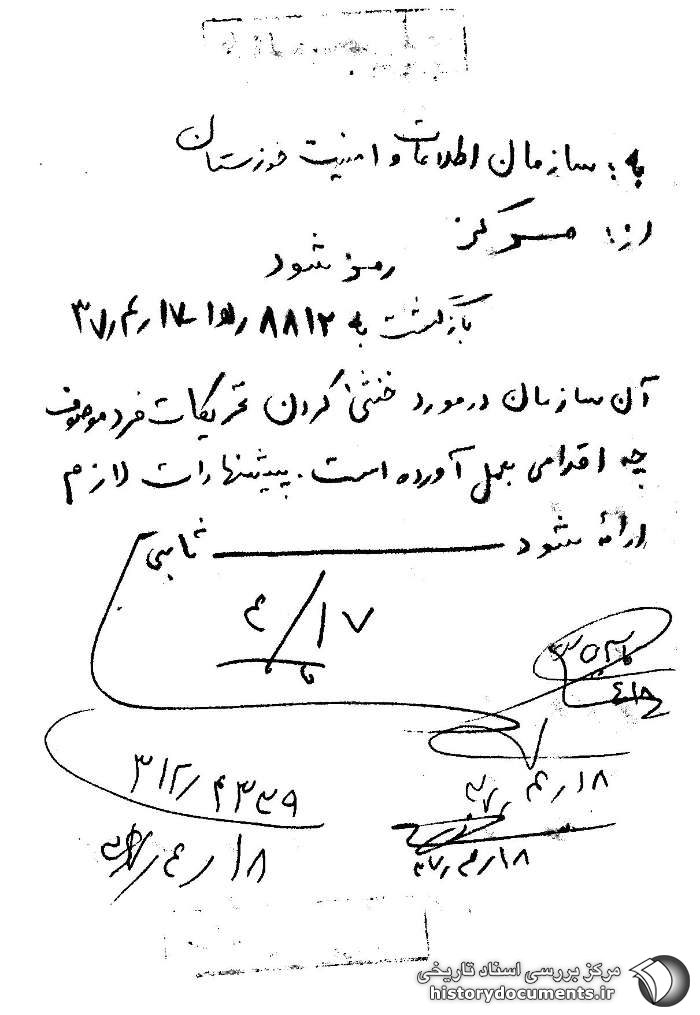 به: سازمان اطلاعات و امنیت خوزستان
از: مرکز
رمز شود
بازگشت به ۸۸۱۲ ۱۷ر۴ر۳۷
آن سازمان در مورد خنثی کردن تحریکات فرد موصوف
چه اقدامی بعمل آورده است. پیشنهادات لازم
ارائه شود ثابتی
۱۷/۴
۱۸ر۴ر۳۷
۳۱۲ر۴۳۳۹
۱۸ر۴ر۳۷
۱۸ر۴ر۳۷
مرکز بررسی اسناد تاریخی
historydocuments.ir